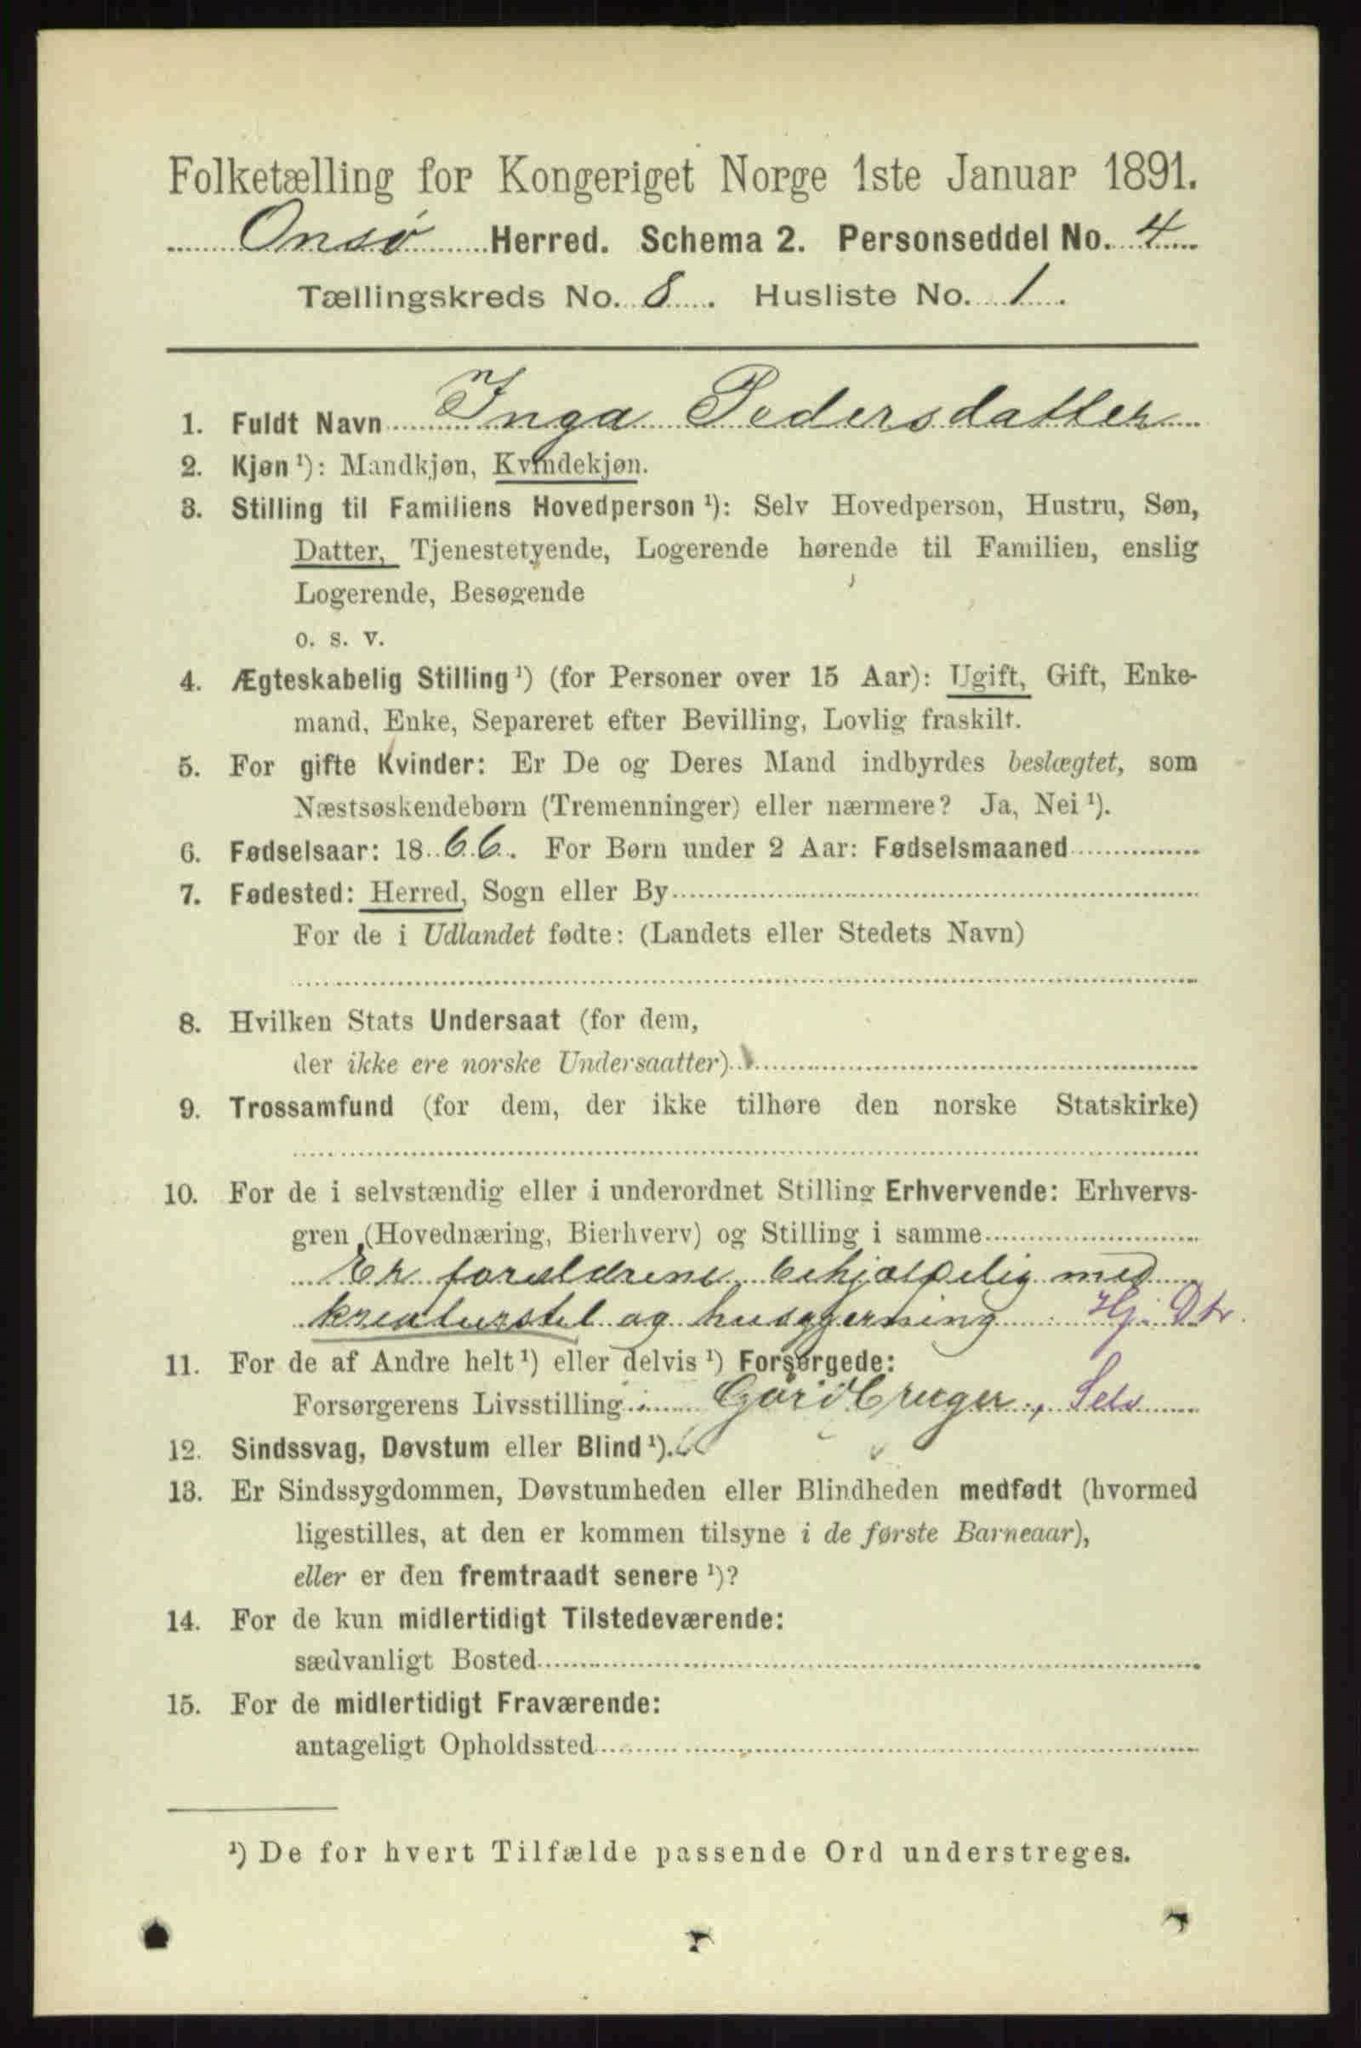 Folketælling for Kongeriget Norge 1ste Januar 1891.
Onsø Herred. Schema 2. Personseddel No. 4
Tællingskreds No. 8. Husliste No. 1.
1. Fuldt Navn Inga Pedersdatter
2. Kjøn ¹): Mandkjøn, Kvindekjøn.
3. Stilling til Familiens Hovedperson ¹): Selv Hovedperson, Hustru, Søn,
Datter, Tjenestetyende, Logerende hørende til Familien, enslig
Logerende, Besøgende
o. s. v.
4. Ægteskabelig Stilling ¹) (for Personer over 15 Aar): Ugift, Gift, Enke-
mand, Enke, Separeret efter Bevilling, Lovlig fraskilt.
5. For gifte Kvinder: Er De og Deres Mand indbyrdes beslægtet, som
Næstsøskendebørn (Tremenninger) eller nærmere? Ja, Nei ¹).
6. Fødselsaar: 1866. For Børn under 2 Aar: Fødselsmaaned
7. Fødested: Herred, Sogn eller By
For de i Udlandet fødte: (Landets eller Stedets Navn)
8. Hvilken Stats Undersaat (for dem,
der ikke ere norske Undersaatter)
9. Trossamfund (for dem, der ikke tilhøre den norske Statskirke)
10. For de i selvstændig eller i underordnet Stilling Erhvervende: Erhvervs-
gren (Hovednæring, Bierhverv) og Stilling i samme
Er forældrene behjælpelig med
kreaturstel og husgjerning Hj. Dtr.
11. For de af Andre helt ¹) eller delvis ¹) Forsørgede:
Forsørgerens Livsstilling Gårdbruger, Selv
12. Sindssvag, Døvstum eller Blind ¹).
13. Er Sindssygdommen, Døvstumheden eller Blindheden medfødt (hvormed
ligestilles, at den er kommen tilsyne i de første Barneaar),
eller er den fremtraadt senere ¹)?
14. For de kun midlertidigt Tilstedeværende:
sædvanligt Bosted
15. For de midlertidigt Fraværende:
antageligt Opholdssted
¹) De for hvert Tilfælde passende Ord understreges.